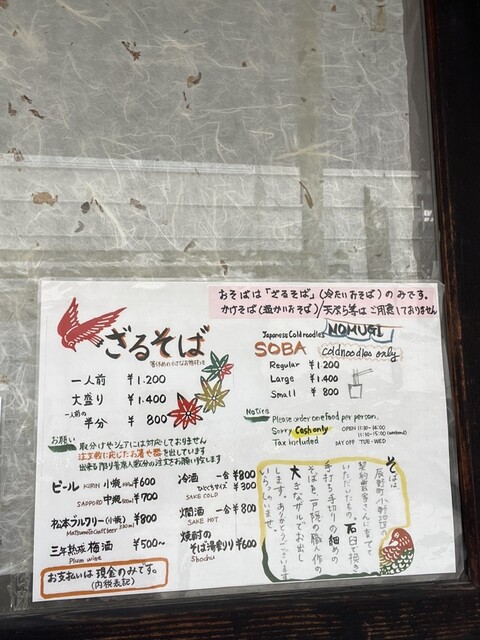 おそばは「ざるそば」(冷たいおそば)のみです。
かけそば(温かいおそば)/天ぷら等はご用意しておりません
ざるそば
一人前 ¥1.200
大盛り ¥1.400
一人前の半分 ¥ 800
Japanese Cold noodles NOMUGI
SOBA cold noodles only
Regular ¥1.200
Large ¥1.400
Small ¥ 800
お願い 取分けやシェアには対応しておりません
注文数に応じたお湯や器を出しています
出来る限り
人数分の注文お願い致します
Notice
Please order one food per person.
Sorry Cash only OPEN 11:30-
Tax included DAY OFF TUE-WED
ビール KIRIN 小瓶 ¥600
SAPPORO 中瓶 500ml ¥700
松本ブルワリー(小瓶) ¥800
Matsumoto Craft beer 330ml
三年熟成 梅酒 ¥500~
Plum wine
お支払いは現金のみです。
(内税表記)
冷酒 一合 ¥800
ひとくちサイズ ¥300
SAKE COLD
燗酒 一合 ¥800
SAKE HOT
焼酎の
そば湯割り ¥600
Shochu
そばは
契約農家さんに育てて
いただいたもの。石臼で挽き
手打ち、手切りの細めの
そばを、一戸隠の職人作の
大きなザルでお出し
します。ありがとうございます
いらっしゃいませ。